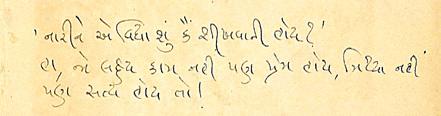 'નારીને એ વિદ્યા શું કૈં શીખવાની હોય?'
હા, જો લક્ષ્ય કામ નહીં પણ પ્રેમ હોય, મિથ્યા નહીં
પણ સત્ય હોય તો!